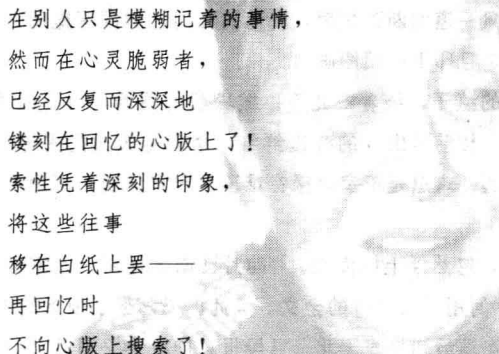 在别人只是模糊记着的事情，
然而在心灵脆弱者，
已经反复而深深地
镂刻在回忆的心版上了！
索性凭着深刻的印象，
将这些往事
移在白纸上罢——
再回忆时
不向心版上搜索了！